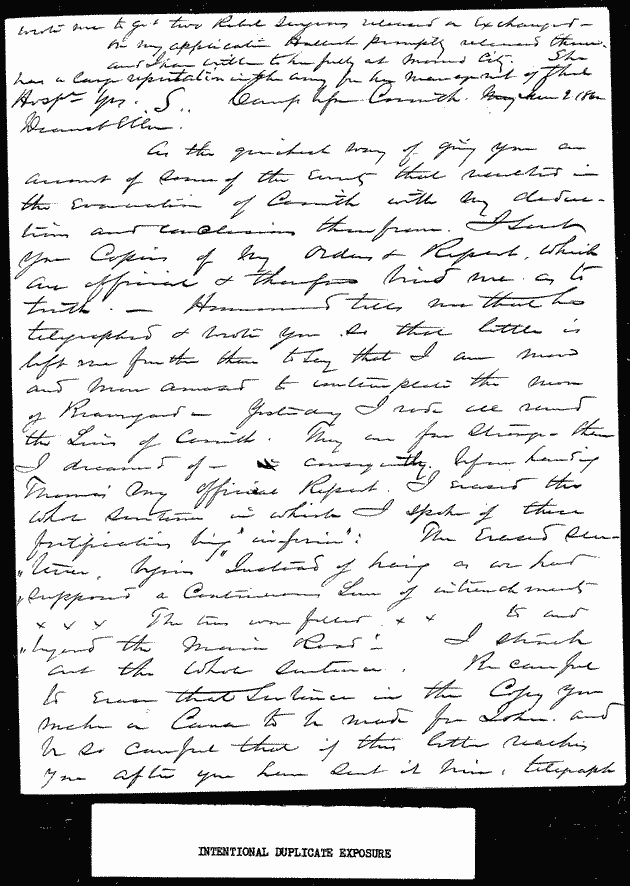 wrote me to get two Rebel Surgeons released or Exchanged -
on my application Halleck promptly released them.
and I have written to her fully at Mound City. She
has a large reputation in the army for her management of that
Hosp. Yrs. S. Camp before Corinth. June 2 186
Dearest Ellen.
As the quickest way of giving you an
account of some of the Events that resulted in
the Evacuation of Corinth with my deduc-
tions and conclusions therefrom. I send
you Copies of my orders & Report, which
are official & therefore bind me as to
truth. — Hammond tells me that he
telegraphed & wrote you so that little is
left me further than to say that I am more
and more amazed to contemplate the move
of Beauregard - Yesterday I rode all round
the Lines of Corinth. They are far stronger than
I dreamed of - consequently before handing
Thomas my official Report. I Erased the
whole sentence in which I spoke of these
fortifications being "inferior": The Erased sen-
"tence, begins "Instead of being as we had
"supposed a Continuous Line of intrenchments
x x x The trees were felled x x to and
"beyond the Main Road" - I struck
out the whole sentence. Be careful
to Erase that Sentence in the Copy you
make or Cause to be made for John. and
be so careful that if this letter reaches
you after you have sent it him, telegraph
INTENTIONAL DUPLICATE EXPOSURE